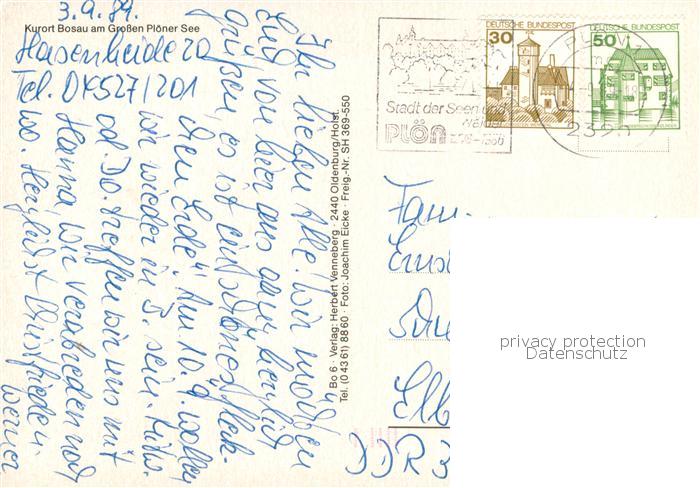 3.9.84.
Kurort Bosau am Großen Plöner See
Hasenheide 20
Tel. 04527/201
Ihr lieben Alle! Wir möchten
Euch von hier aus ganz herzlich
grüßen, es ist ein schönes Fleck-
chen Erde! Am 10.9. wollen
wir wieder in S. sein. Mitw.
od. Do. treffen wir uns mit
Hanna wir verabreden noch
wo. Herzlichst Christfried u.
Werner
Bo 6 · Verlag: Herbert Venneberg · 2440 Oldenburg/Holst.
Tel. (0 43 61) 88 60 · Foto: Joachim Eicke · Freig.-Nr. SH 369-550
Stadt der Seen und
Wälder
PLÖN
1236-1986
30
DEUTSCHE BUNDESPOST
50
DEUTSCHE BUNDESPOST
2320
Fam.
DDR
privacy protection
Datenschutz